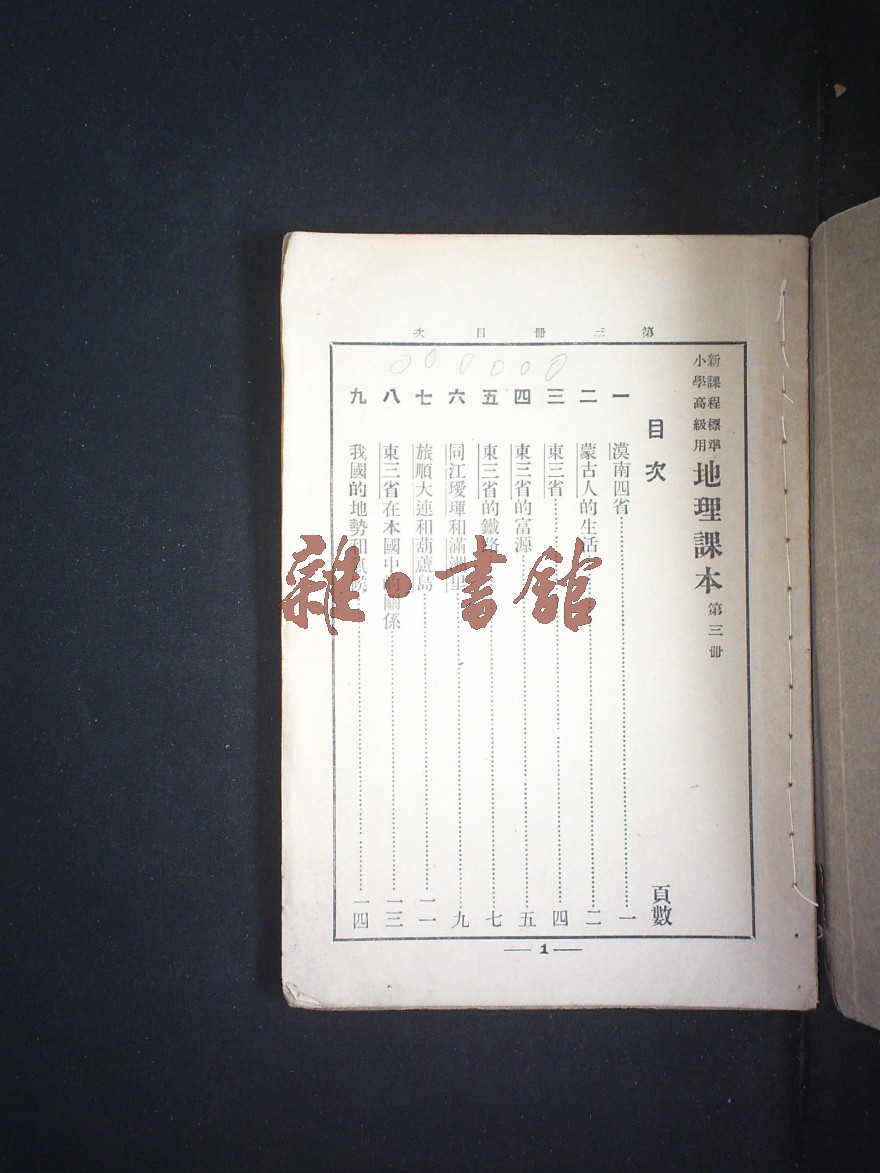 第三册目次
新課程標準
小學高級用
地理課本 第三册
目次 頁數
一 漠南四省 一
二 蒙古人的生活 二
三 東三省 四
四 東三省的富源 五
五 東三省的鐵路 七
六 同江璦琿和滿洲里 九
七 旅順大連和葫蘆島 一一
八 東三省在本國中的關係 一三
九 我國的地勢和 一四
1
雜·書館